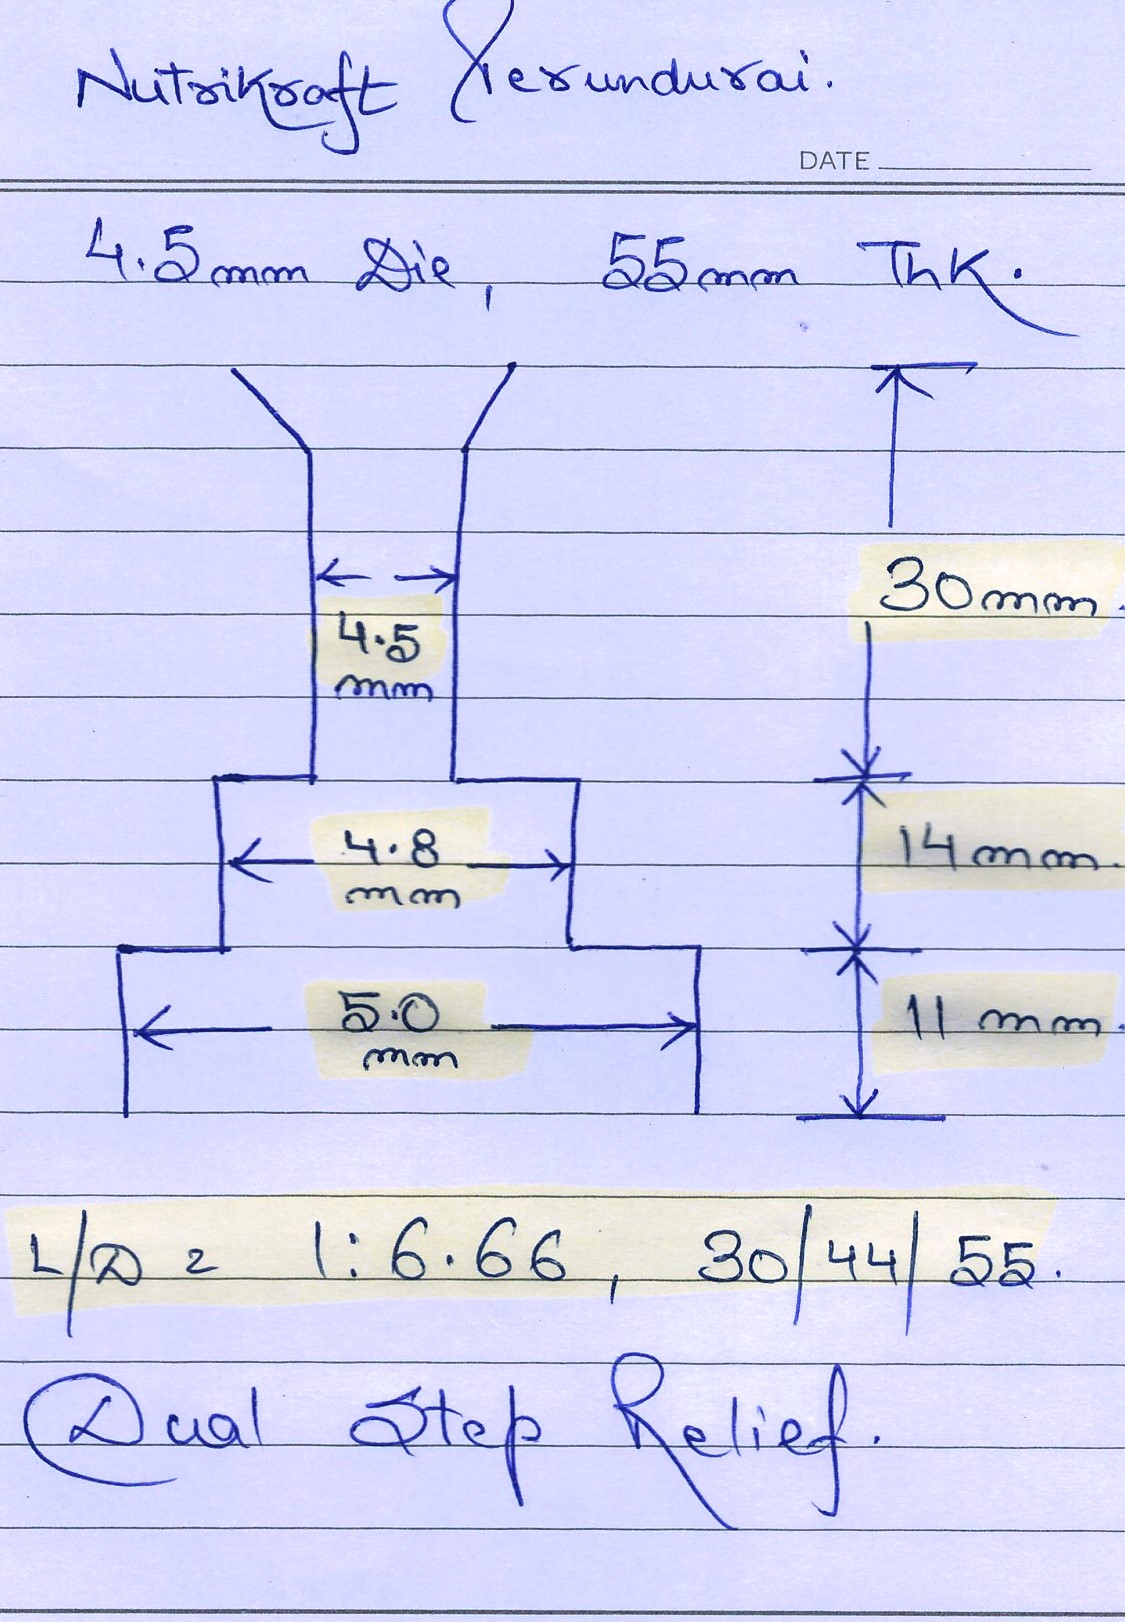 Nutrikraft Perundurai.
DATE
4.5mm Die, 55mm Thk.
30mm.
4.5
mm
4.8
mm
14mm.
5.0
mm
11 mm.
L/D = 1:6.66, 30/44/55.
Dual Step Relief.